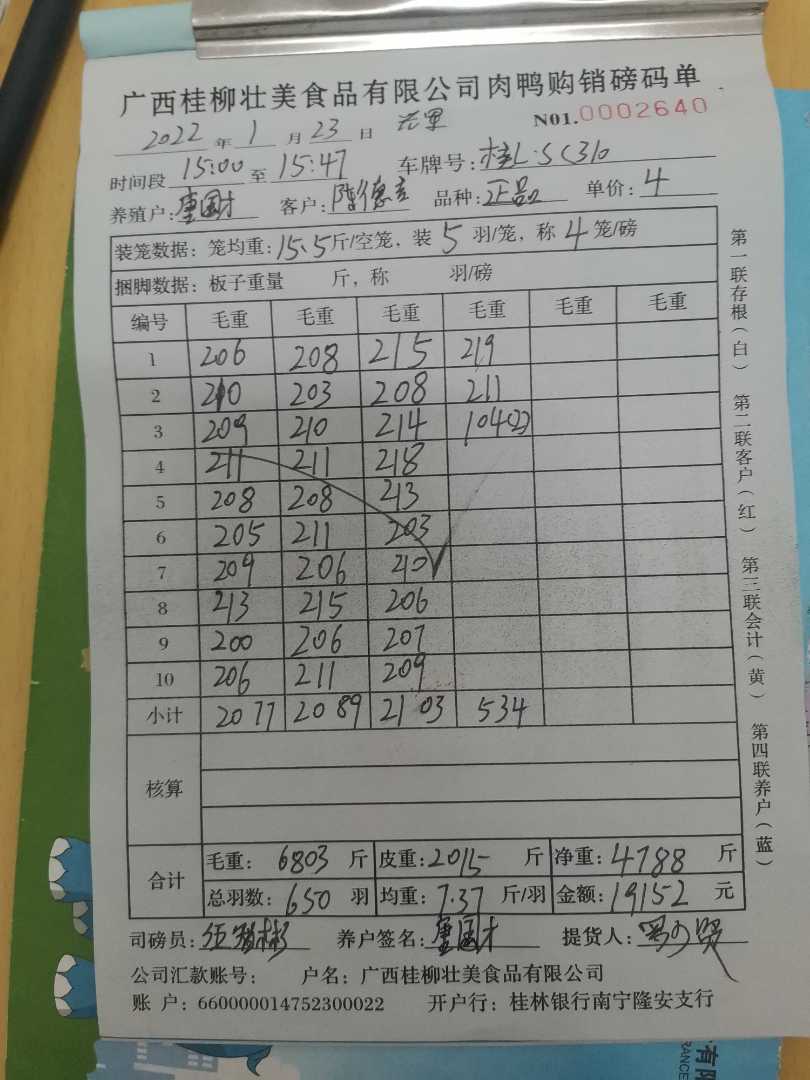 广西桂柳壮美食品有限公司肉鸭购销磅码单
2022 年 1 月 23 日 N01.0002640
时间段 15:00 至 15:47 车牌号: 桂L·SC310
养殖户: 唐国才 客户: 陈德 品种: 正品 单价: 4
装笼数据: 笼均重: 15.5 斤/空笼, 装 5 羽/笼, 称 4 笼/磅
捆脚数据: 板子重量 斤, 称 羽/磅
编号 毛重 毛重 毛重 毛重 毛重 毛重
1 206 208 215 219
2 210 203 208 211
3 209 210 214 104(2)
4 211 211 218
5 208 208 213
6 205 211 203
7 209 206 210
8 213 215 206
9 200 206 207
10 206 211 209
小计 2077 2089 2103 534
核算
合计 毛重: 6803 斤 皮重: 2015 斤 净重: 4788 斤
总羽数: 650 羽 均重: 7.37 斤/羽 金额: 19152 元
司磅员: 养户签名: 唐国才 提货人:
公司汇款账号: 户名: 广西桂柳壮美食品有限公司
账 户: 660000014752300022 开户行: 桂林银行南宁隆安支行
第一联存根(白) 第二联客户(红) 第三联会计(黄) 第四联养户(蓝)
有限
RANCE